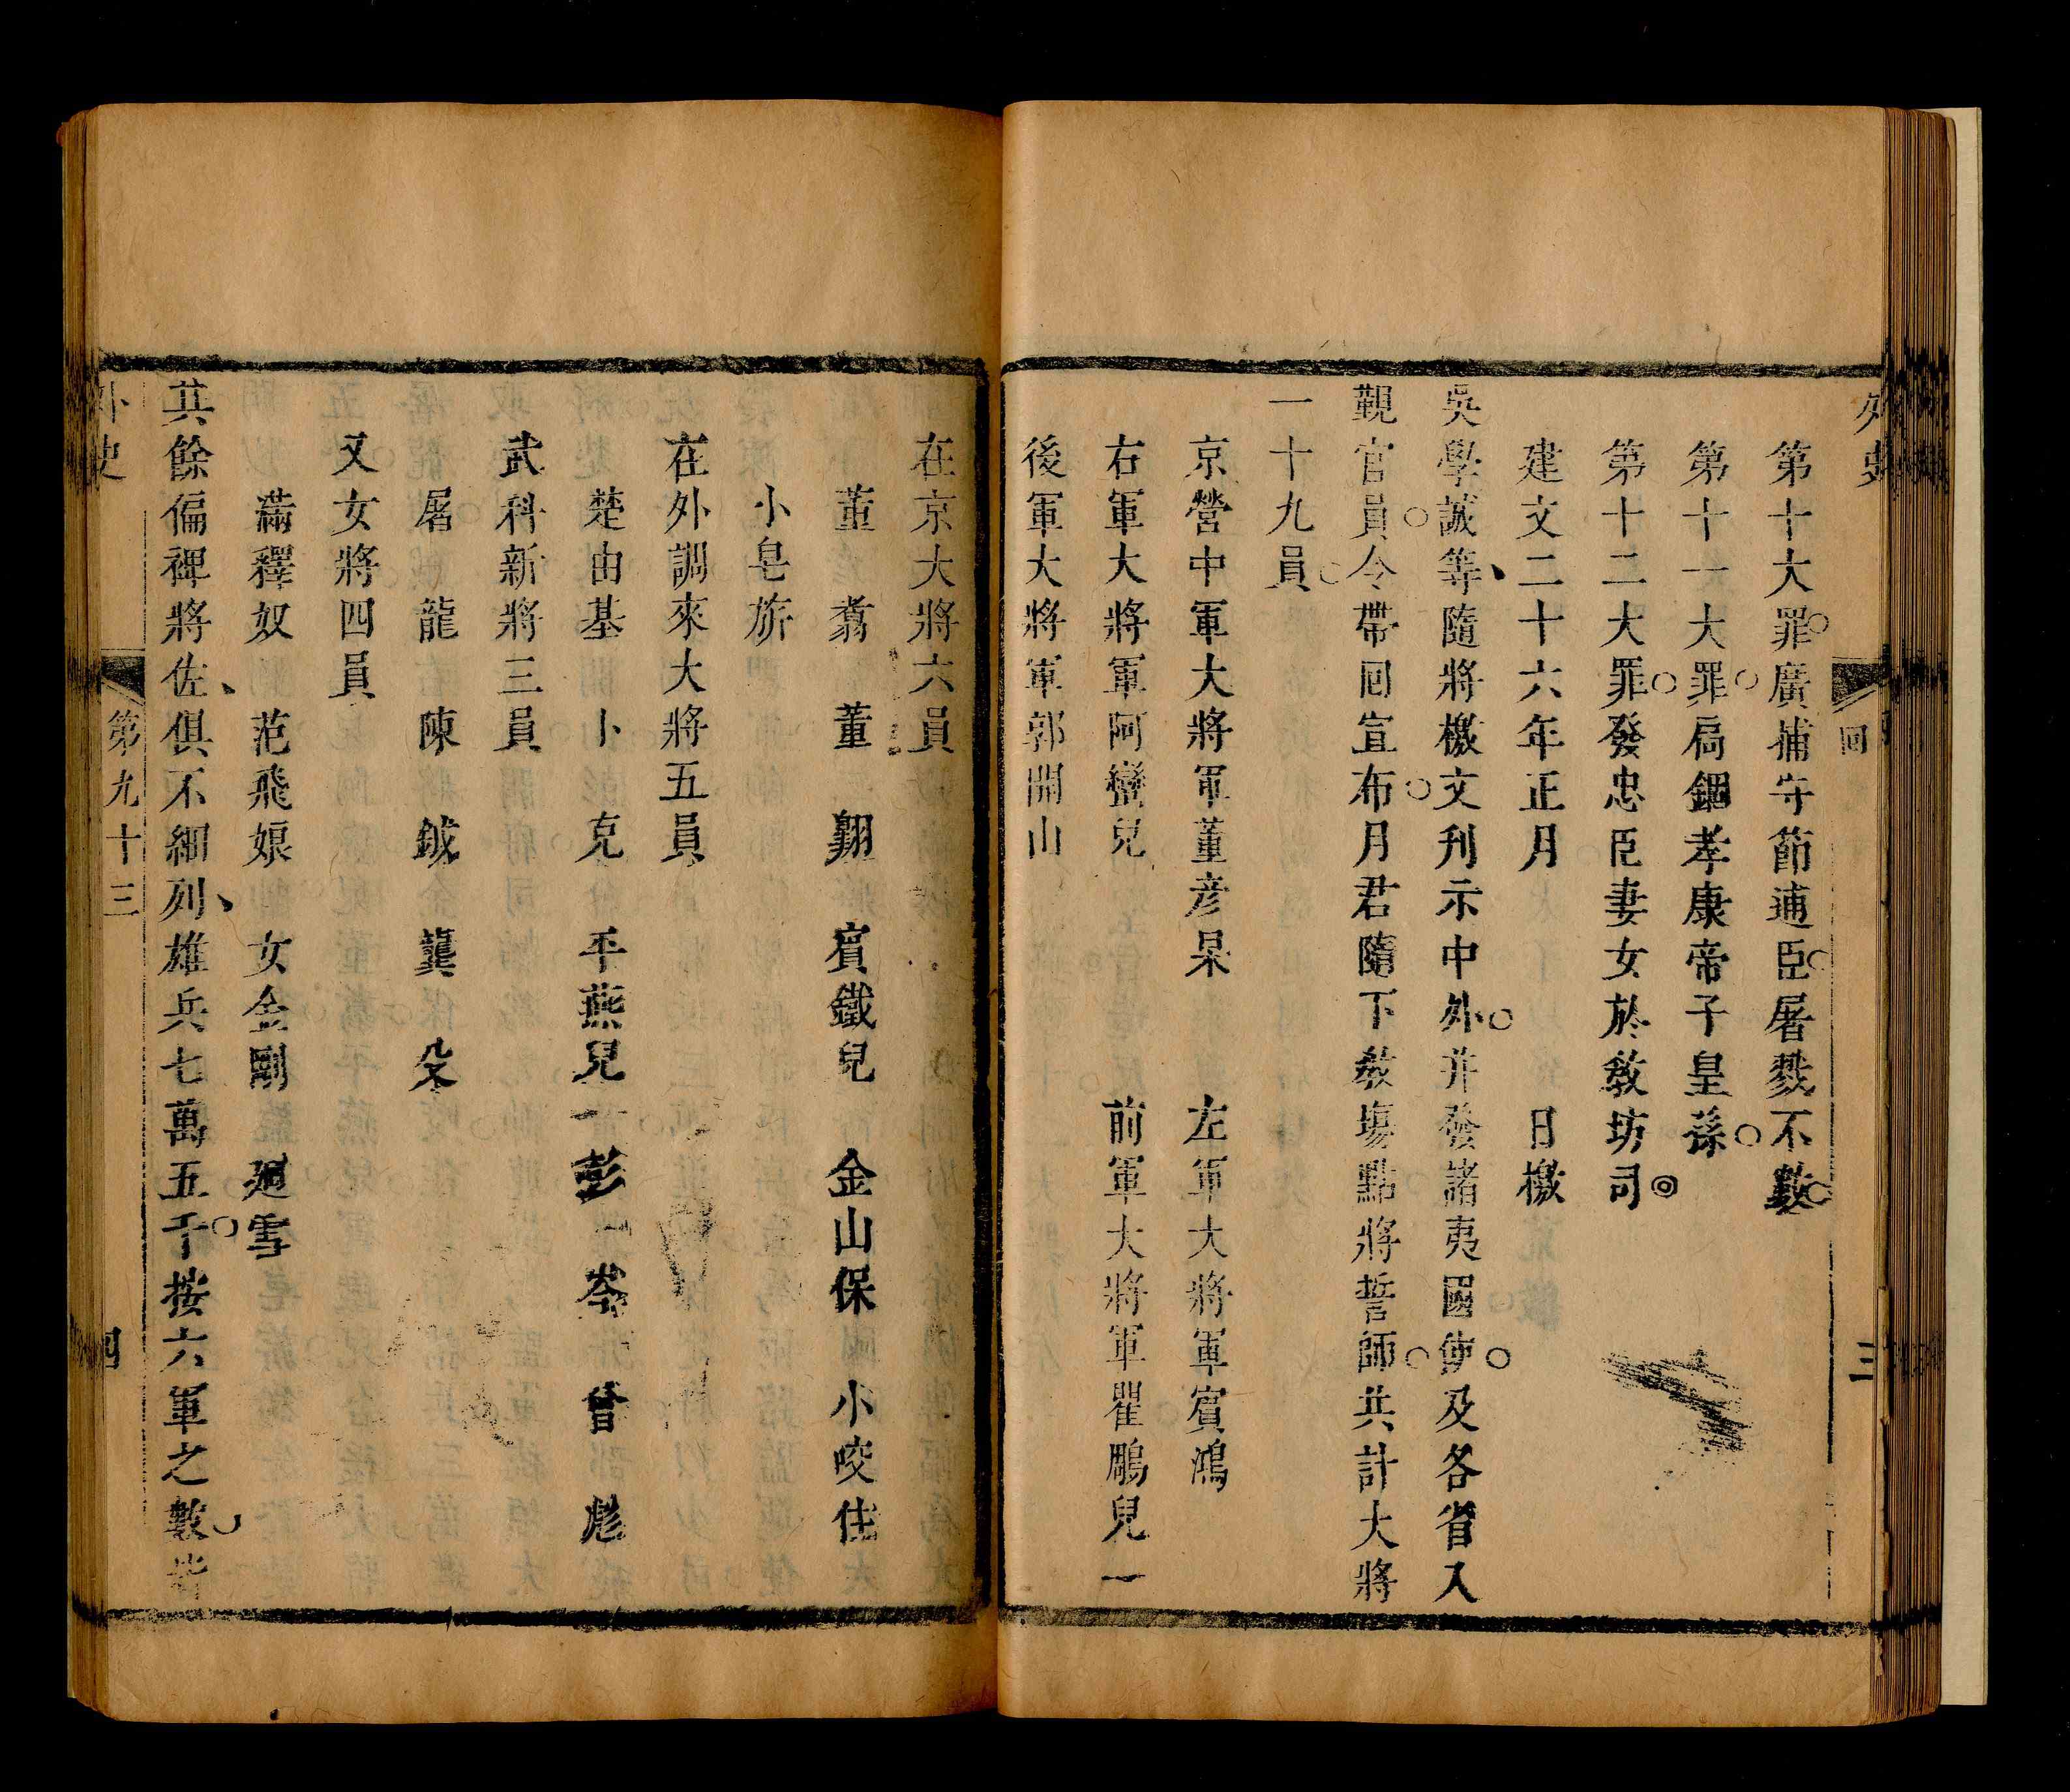 外史
回
三
第十大罪廣捕守節逋臣屠戮不數
第十一大罪扃錮孝康帝子皇孫
第十二大罪發忠臣妻女於教坊司
建文二十六年正月　日檄
吳學誠等隨將檄文刋示中外并發諸夷國使及各省入
覲官員令帶回宣布月君隨下教場點將誓師共計大將
一十九員
京營中軍大將軍董彥杲　左軍大將軍賓鴻
右軍大將軍阿蠻兒　前軍大將軍瞿鵰兒
後軍大將軍郭開山
在京大將六員
董翥　董翱　賓鐵兒　金山保　小咬住
小皂旂
在外調來大將五員
楚由基　卜克　平燕兒　彭岑　曾彪
武科新將三員
屠龍　陳鉞　龔殳
又女將四員
滿釋奴　范飛娘　女金剛　廻雪
其餘偏裨將佐俱不細列雄兵七萬五千按六軍之數皆
外史
第九十三
四